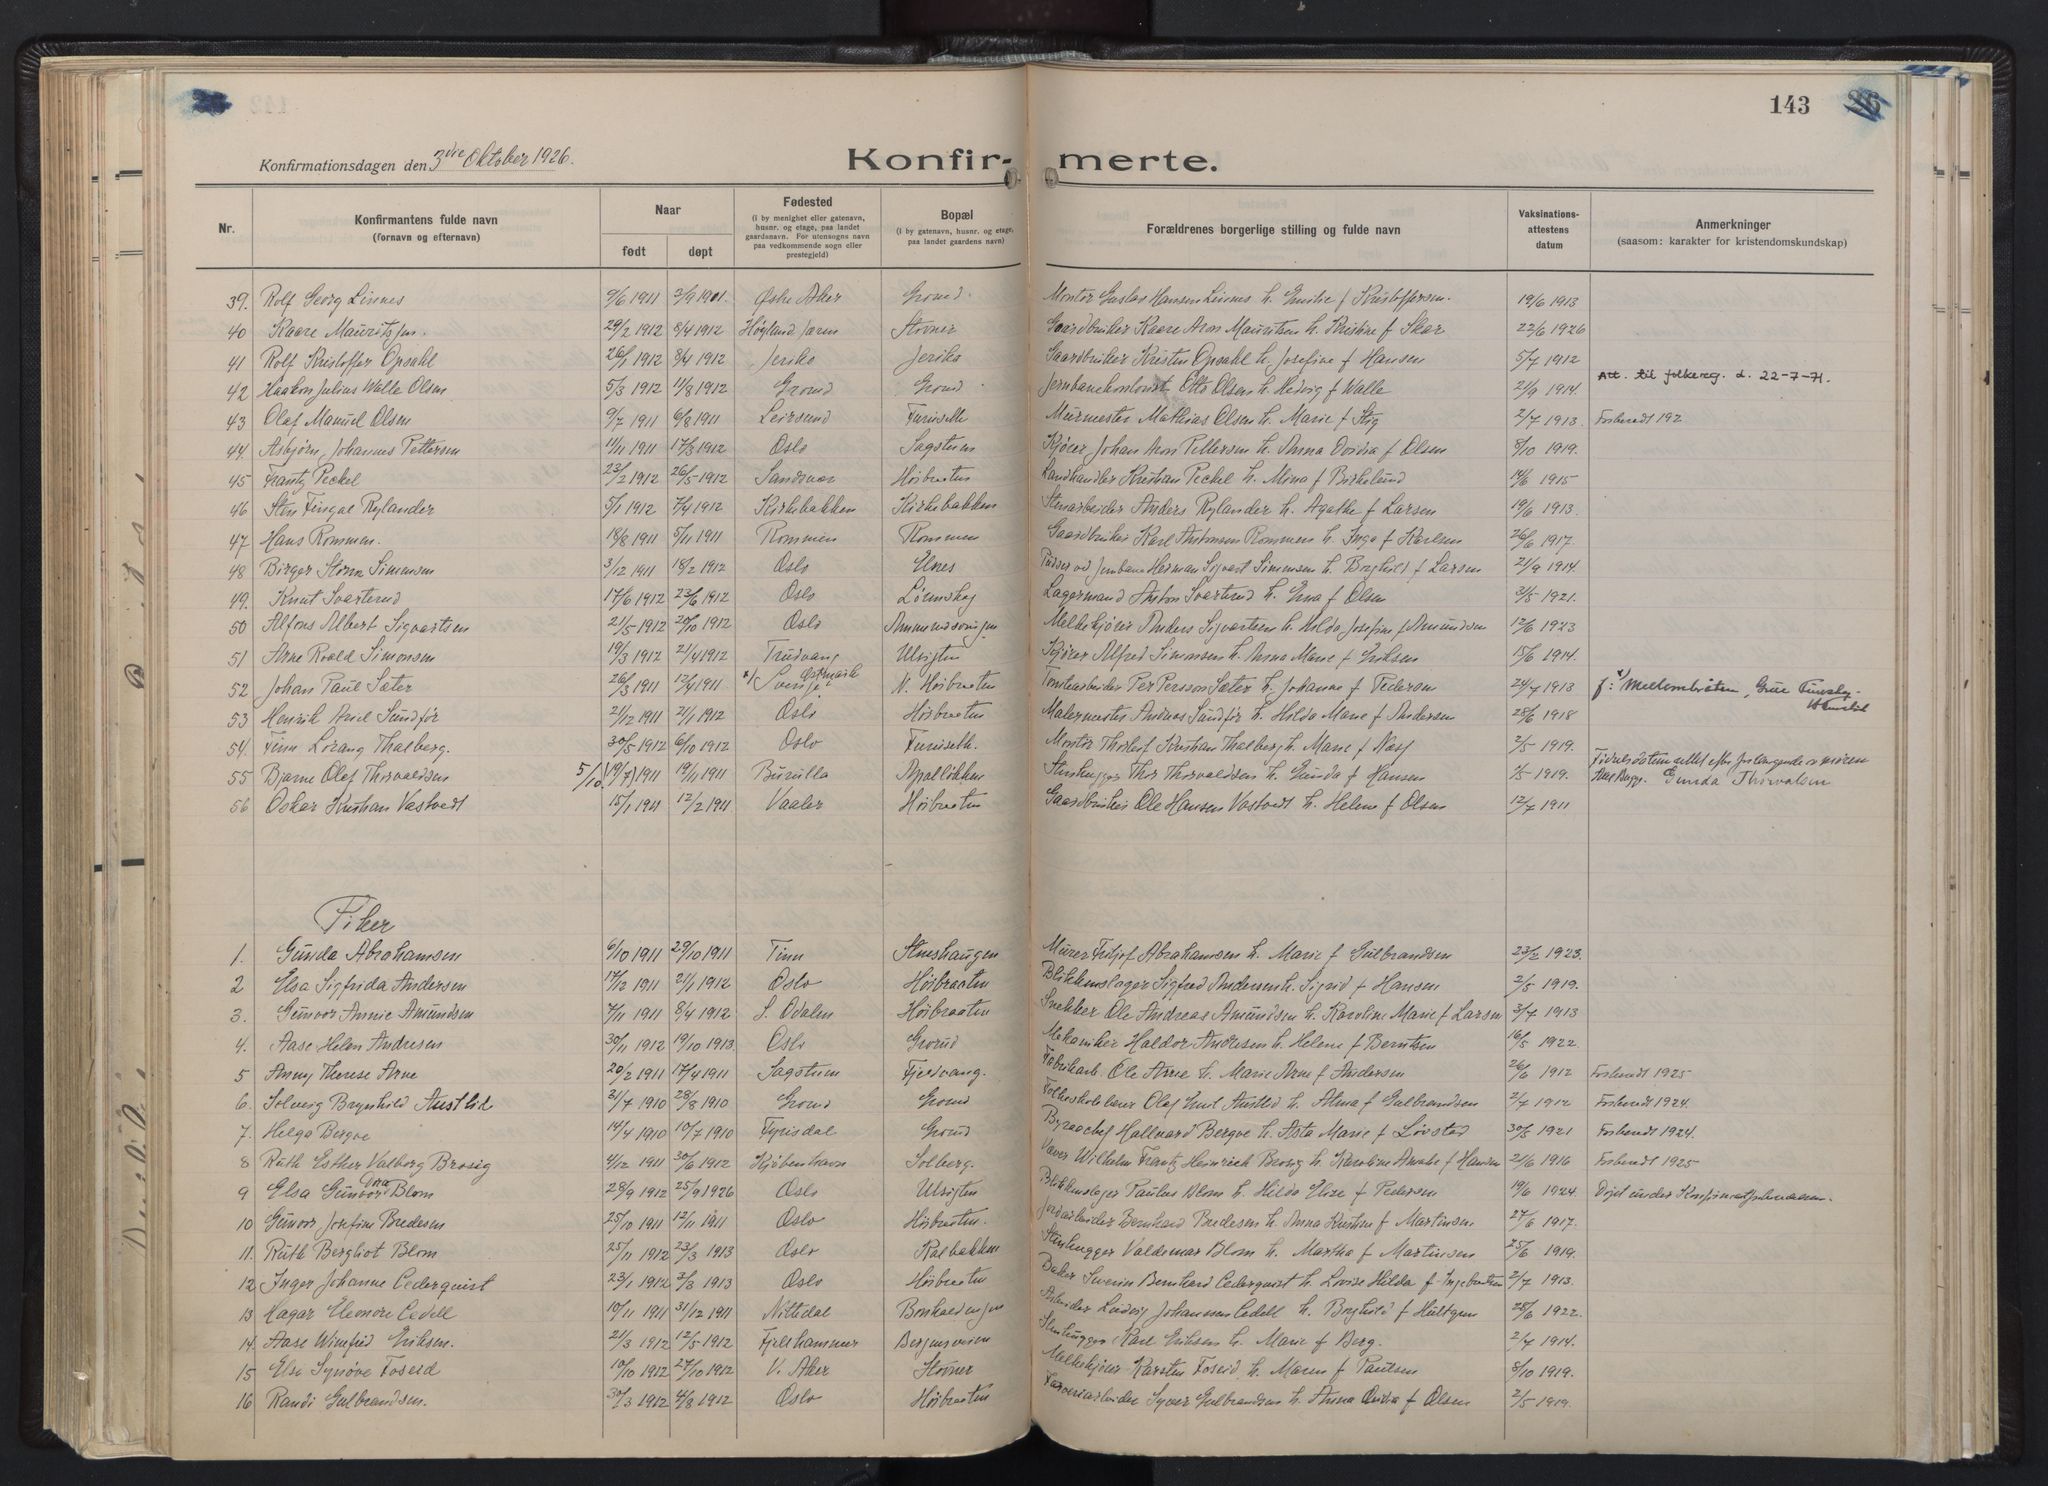 143
Konfirmationsdagen den 3die Oktober 1926.
Konfir- merte.
Nr.
Konfirmantens fulde navn
(fornavn og efternavn)
Naar
født
døpt
Fødested
(i by menighet eller gatenavn,
husnr. og etage, paa landet
gaardsnavn. For utensogns navn
paa vedkommende sogn eller
prestegjeld)
Bopæl
(i by gatenavn, husnr. og etage,
paa landet gaardens navn)
Forældrenes borgerlige stilling og fulde navn
Vaksinations-
attestens
datum
Anmerkninger
(saasom: karakter for kristendomskundskap)
39. Rolf Georg Linnes 9/6 1911 Østre Aker Grorud Montør Gustav Hansen Linnes h. Emilie f Kristoffersen 19/6 1913
40 Kaare Mauritzen. 29/2 1912 8/4 1912 Høyland Jæren Stovner Gaardbruker Kaare Aron Mauritsen h. Kristine f Skar 22/6 1926
41 Rolf Kristoffer Opsahl 26/1 1912 8/4 1912 Jeriko Jeriko Gaardbruker Kristen Opsahl h. Josefine f Hansen 5/7 1912
42 Haakon Julius Walle Olsen 5/3 1912 11/8 1912 Grorud Grorud Otto Olsen h. Hedvig f Walle 21/9 1914. Att. til folkereg. d. 22-7-71.
43 Olaf Manuel Olsen 9/7 1911 6/8 1911 Leirsund Furuseth Murmester Mathias Olsen h. Marie f Stig 2/7 1913. Forberedt 192
44 Asbjørn Johannes Pettersen 11/11 1911 17/3 1912 Oslo Sagstuen Kjører Johan Aron Pettersen h. Anna Ovidia f Olsen 8/10 1919.
45 Frantz Peckel 23/2 1912 26/5 1912 Sandsvær Høibraaten Landhandler Kristian Peckel h. Mina f Birkelund 14/6 1915
46 Sten Fingal Rylander 5/1 1912 7/4 1912 Kirkebakken Kirkebakken Stenarbeider Anders Rylander h. Agathe f Larsen 19/6 1913.
47 Hans Rommen. 18/8 1911 5/11 1911 Rommen Rommen Gaardbruker Karl Antonsen Rommen h. Inga f Karlsen 26/6 1917.
48 Birger Storm Simensen 3/12 1911 18/2 1912 Oslo Elnes Pudser ved Jernbane Herman Sigvart Simensen h. Borghild f Larsen 21/9 1914.
49. Knut Svarterud 17/6 1912 23/6 1912 Oslo Lørenskog Lagermand Anton Svarterud h. Erna f Olsen 31/5 1921.
50 Alfons Albert Sigvartsen 21/5 1912 20/10 1912 Oslo Melkekjører Anders Sigvartsen h. Hilda Josefine f Amundsen 12/6 1923
51 Arne Roald Simonsen 19/3 1912 21/4 1912 Trudvang Ulsigten Kjører Alfred Simonsen h. Anna Marie f Eriksen 15/6 1914.
52 Johan Paul Sæter 26/3 1911 17/4 1911 x/ Østmark Sverige N. Høibraaten Per Persson Sæter h. Johanne f Pedersen 24/7 1913 f: x/ Mellembraaten, Grue Finnskog
53 Henrik Ariel Sundfør 21/12 1911 21/1 1912 Oslo Høibraaten Malermester Andreas Sundfør h. Hilda Marie f Andersen 28/6 1918
54. Finn Lorang Thalberg. 30/5 1912 6/10 1912 Oslo Furuseth. Montør Thorleif Kristian Thalberg h. Marie f Næss 2/5 1919.
55 Bjarne Olaf Thorvaldsen 5/10 (19/7) 1911 19/11 1911 Burulla Apalløkken Stenhugger Thor Thorvaldsen h. Gunda f Hansen 1/5 1919. Fødselsdatum rettet efter forlangende av moren
Gunda Thorvalsen
56 Oskar Kristian Vastvedt 15/1 1911 12/2 1911 Vaaler Høibraaten Gaardbruker Ole Hansen Vastvedt h. Helene f Olsen 12/7 1911
Piker
1. Gunda Abrahamsen 6/10 1911 29/10 1911 Tinn Stenshaugen Murer Fritjof Abrahamsen h. Marie f Gulbrandsen 23/2 1923.
2 Elsa Sigfrida Andersen 17/12 1911 21/1 1912 Oslo Høibraaten Blikkenslager Sigfred Andersen h. Sigrid f Hansen 2/5 1919.
3. Gunvor Annie Amundsen 7/11 1911 8/4 1912 S. Odalen Høibraaten Snekker Ole Andreas Amundsen h. Karoline Marie f Larsen 3/7 1913
4. Aase Helen Andresen 30/11 1912 19/10 1913. Oslo Grorud Mekaniker Haldor Andresen h. Helene f Berntsen 16/5 1922.
5 Anny Therese Arne 20/2 1911 17/4 1911 Sagstuen Fjeldvang. Fabrikarb. Ole Arne h. Marie Arne f Andersen 26/6 1912 Forberedt 1925
6. Solveig Brynhild Austlid 31/7 1910 28/8 1910 Grorud Grorud Folkeskolelærer Olaf Emil Austlid h. Alma f Gulbrandsen 2/7 1912 Forberedt 1924.
7. Helga Bergve 14/4 1910 10/7 1910 Fyrisdal Grorud Byraachef Hallvard Bergve h. Asta Marie f Løvstad 30/5 1921 Forberedt 1924.
8 Ruth Esther Valborg Brosig 4/12 1911 30/6 1912 Kjøbenhavn Solberg. Væver Wilhelm Frantz Heinrich Brosig h. Karoline Amalie f Hansen 2/6 1916 Forberedt 1925
9 Elsa Gunvor Dora Blom 28/9 1912 25/9 1926 Oslo Ulsigten Blikkenslager Paulus Blom h. Hilda Elise f Pedersen 19/6 1924. Døpt under Konfirmantforberedelsen.
10 Gunvor Josefine Bredesen 25/10 1911 12/11 1911 Oslo Høibraaten. Jordarbeider Bernhard Bredesen h. Anna Kristine f Martinsen 27/6 1917.
11. Ruth Bergliot Blom 25/11 1912 23/3 1913 Oslo Kalbakken Stenhugger Valdemar Blom h. Martha f Martinsen 25/6 1919.
12 Inger Johanne Cederquist 23/1 1912 3/3 1913 Oslo Høibraaten Baker Severin Bernhard Cederquist h. Lovise Hilda f Ingebretsen 2/7 1913.
13 Hagar Eleonore Cedell 10/11 1911 31/12 1911 Nittedal Arbeider Ludvig Johanssen Cedell h. Borghild f Hultgren 28/6 1922.
14. Aase Winfrid Eriksen. 21/3 1912 12/5 1912 Fjellhammer Bergensveien Stenhugger Karl Eriksen h. Marie f Berg. 2/7 1914.
15 Else Synøve Foseid 10/10 1912 27/10 1912 V. Aker Stovner Melkekjører Karsten Foseid h. Maren f Paulsen 8/10 1919.
16 Randi Gulbrandsen. 30/3 1912 4/8 1912 Oslo Høibraaten Syver Gulbrandsen h. Anna Ovidia f Olsen 2/5 1919.